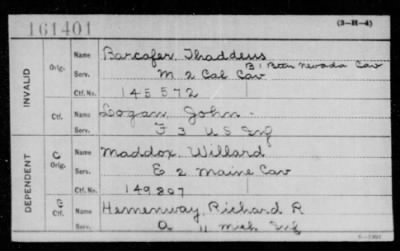 161401
(3-H-4)
INVALID
Orig.
Name Barcafer, Thaddeus
B' Battn Nevada Cav
Serv. M 2 Cal Cav
Ctf. No. 145572
Ctf.
Name Logan John
Serv. F 3 U S Inf
DEPENDENT
C
Orig.
Name Maddox, Willard
Serv. E 2 Maine Cav
Ctf. No. 149897
C
Ctf.
Name Hemenway, Richard R
Serv. 11 Mich Inf